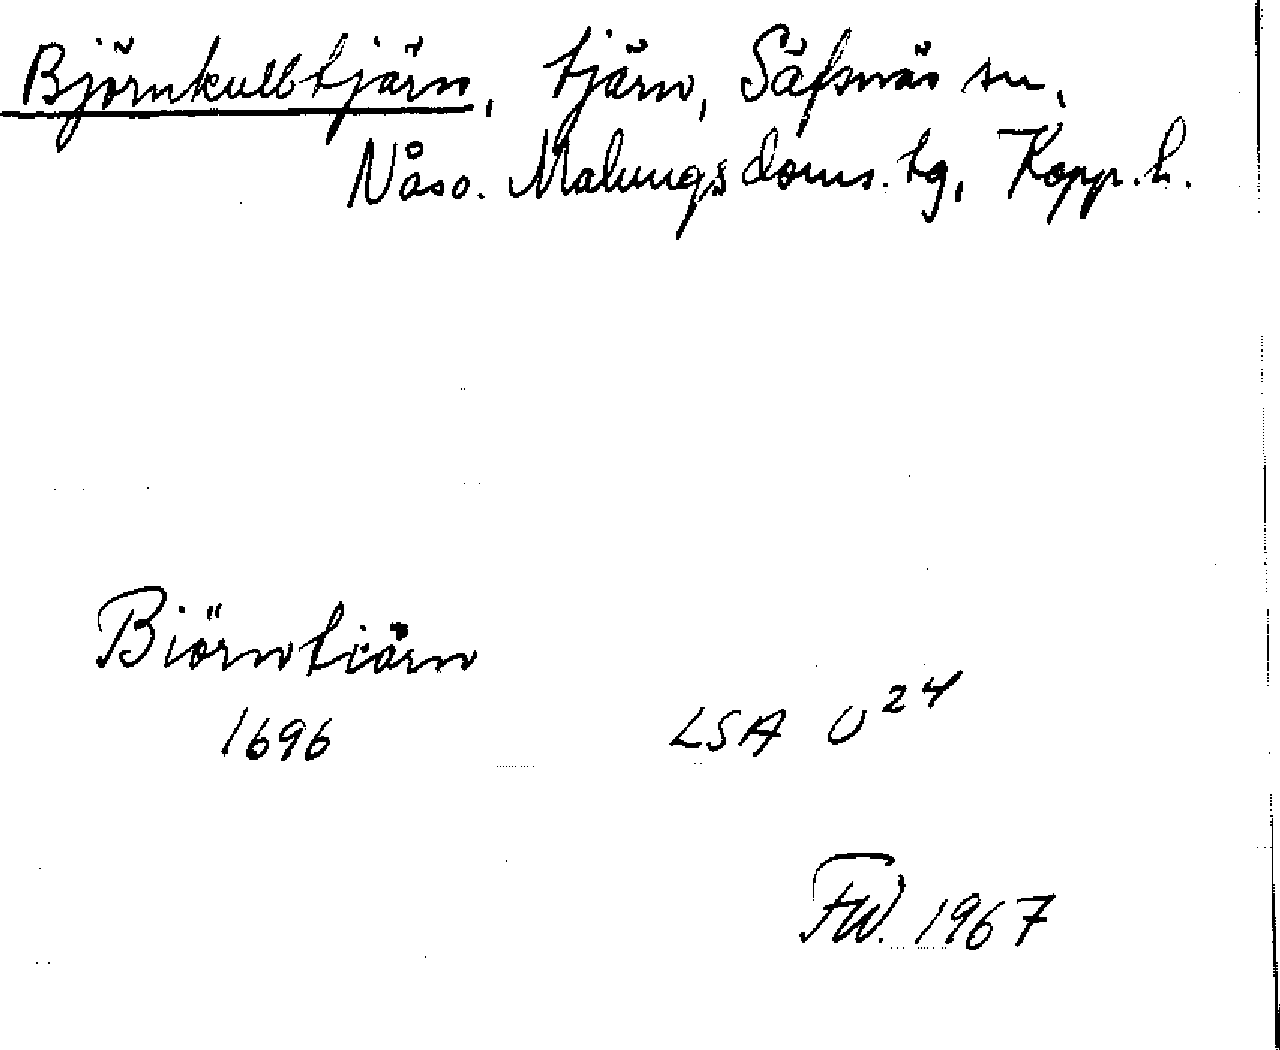 Björnkulbtjärn, tjärn, Säfsnäs sn,
Nås o. Malungs doms. tg, Kopp. l.
Biörntiärn
1696 LSA U24
FW. 1967